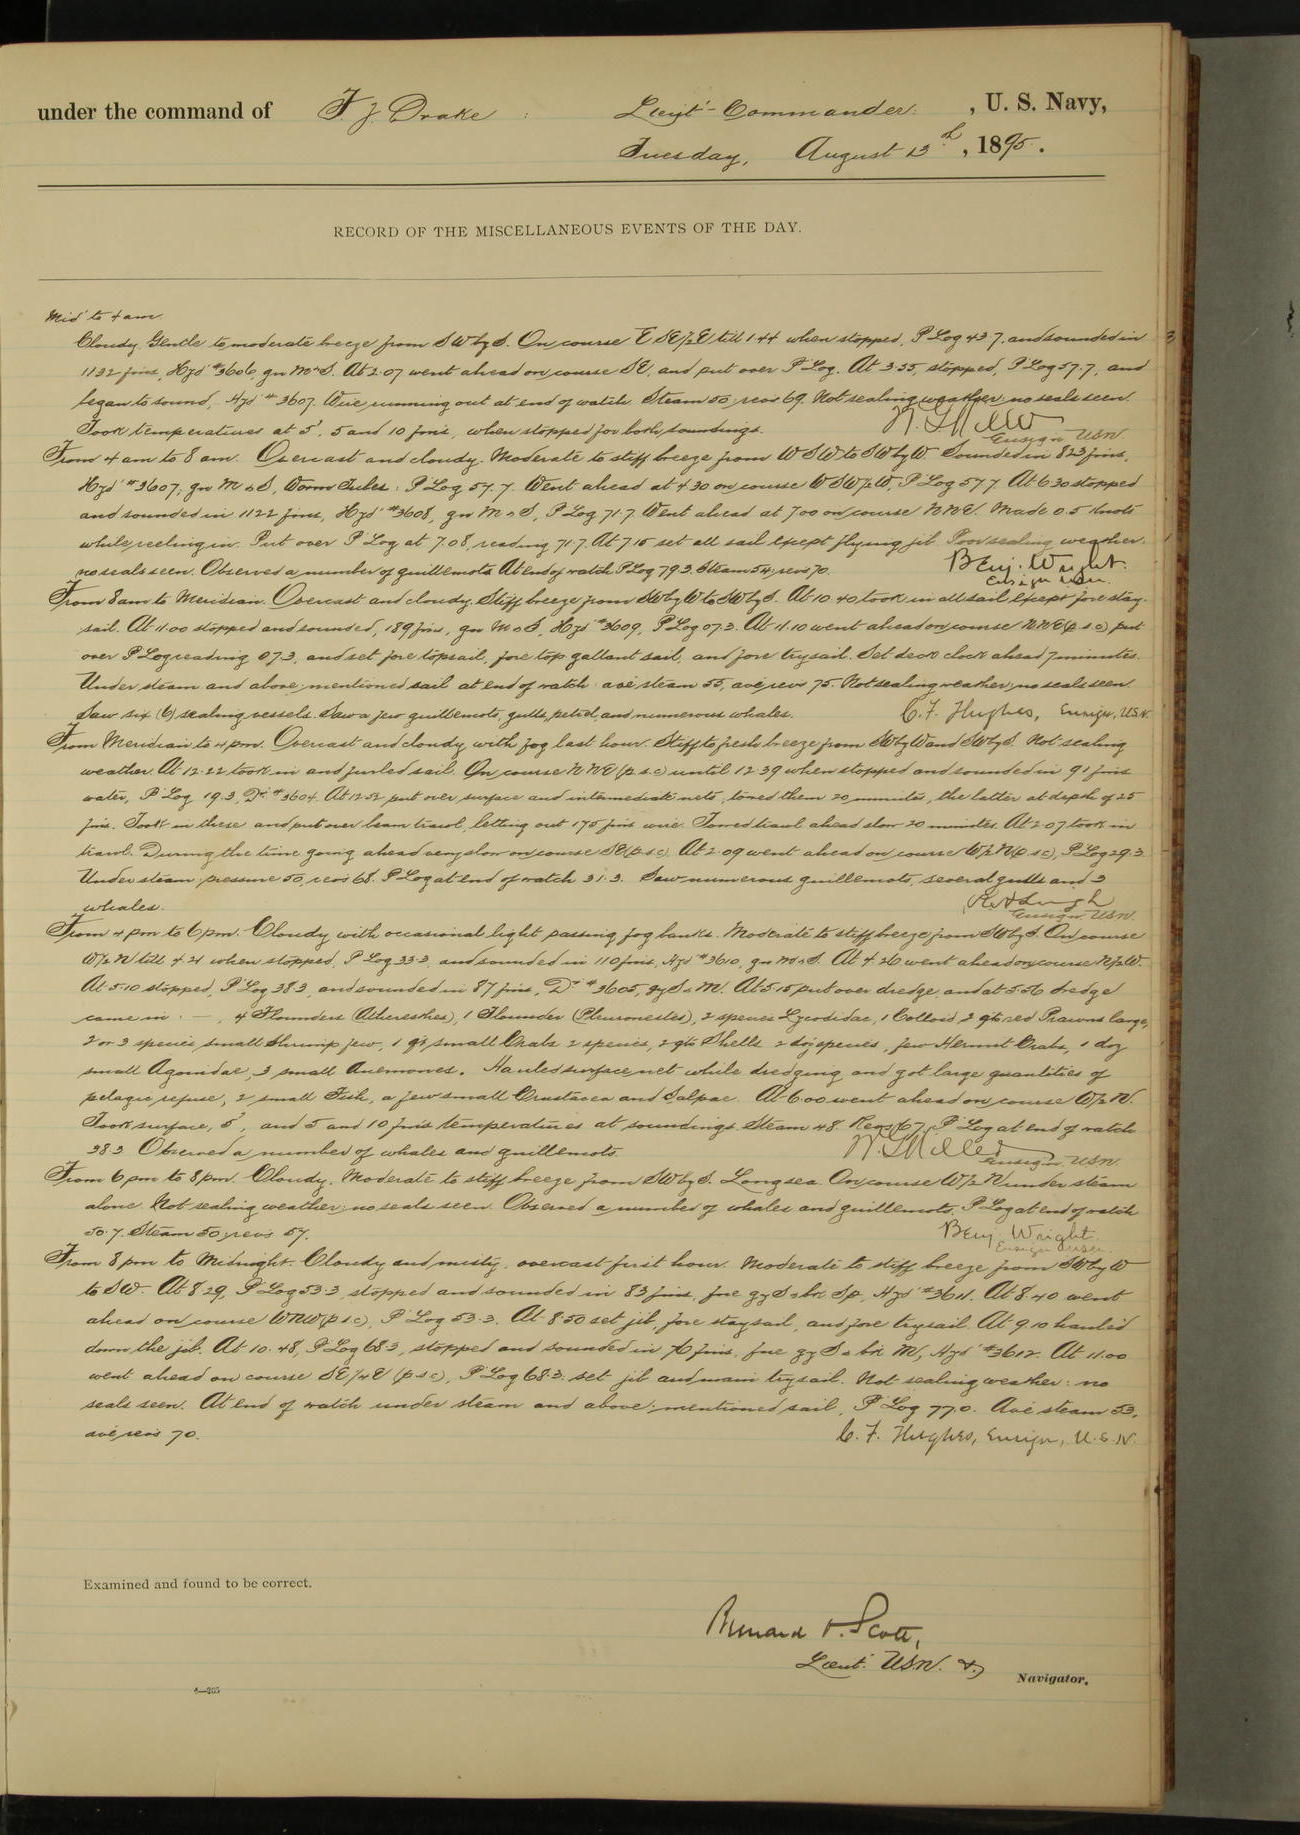 under the command of F. J. Drake, Lieut-Commander, U. S. Navy,
Tuesday, August 13th, 1895.
RECORD OF THE MISCELLANEOUS EVENTS OF THE DAY.
Mid to 4 am.
Cloudy. Gentle to moderate breeze from SW by S. On course E SE/2E till 1.44 when stopped, P Log 43.7, and sounded in
1132 fms, Hyd #3606, gn M & S. At 2.07 went ahead on course SE, and put over P Log. At 3.55, stopped, P Log 57.7, and
began to sound, Hyd #3607. Wire running out at end of watch. Steam 50; revs 69. Not sealing weather, no seals seen.
Took temperatures at 5', 5 and 10 fms, when stopped for both soundings.
Ensign USN.
From 4 am to 8 am. Overcast and cloudy. Moderate to stiff breeze from WSW to SW by W. Sounded in 823 fms,
Hyd #3607; gn M & S, Worm Tubes; P Log 57.7. Went ahead at 4.30 on course WSW/2W, P Log 57.7. At 6.30 stopped
and sounded in 1122 fms, Hyd #3608, gn M & S, P Log 71.7. Went ahead at 7.00 on course NNE. Made 0.5 knots
while reeling in. Put over P Log at 7.08, reading 71.7. At 7.15 set all sail except flying jib. Poor sealing weather.
no seals seen. Observed a number of guillemots. At end of watch P Log 79.3. Steam 54; revs 70.
Benj. Wright.
Ensign USN.
From 8 am to Meridian. Overcast and cloudy. Stiff breeze from SW by W to SW by S. At 10.40 took in all sail except fore stay-
sail. At 11.00 stopped and sounded, 189 fms, gn M & S, Hyd #3609, P Log 07.3. At 11.10 went ahead on course NNE (p s c) put
over P Log reading 07.3, and set fore topsail, fore top gallant sail, and fore trysail. Set deck clock ahead 7 minutes.
Under steam and above-mentioned sail at end of watch: ave steam 55, ave revs 75. Not sealing weather; no seals seen.
Saw six (6) sealing vessels. Saw a few guillemots, gulls, petrel, and numerous whales.
C. F. Hughes, Ensign, U.S.N.
From Meridian to 4 pm. Overcast and cloudy with fog last hour. Stiff to fresh breeze from SW by W and SW by S. Not sealing
weather. At 12.22 took in and furled sail. On course NNE (p.s.c) until 12.39 when stopped and sounded in 91 fms
water, P Log 19.3, Dr #3604. At 12.52 put over surface and intermediate nets, towed them 20 minutes, the latter at depth of 25
fms. Took in these and put over beam trawl, letting out 175 fms wire. Towed trawl ahead slow 20 minutes. At 2.07 took in
trawl. During the time going ahead very slow on course SE (p.s.c). At 2.09 went ahead on course W/2N (p.s.c), P Log 29.3.
Under steam, pressure 50, revs 68. P Log at end of watch 31.3. Saw numerous guillemots, several gulls and 3
whales.
Ensign USN.
From 4 pm to 6 pm. Cloudy with occasional light passing fog banks. Moderate to stiff breeze from SW by S. On course
W/2N till 4.21 when stopped, P Log 33.3, and sounded in 110 fms, Hyd #3610, gn M & S. At 4.26 went ahead on course N/2W.
At 5.10 stopped, P Log 38.3, and sounded in 87 fms, Dr #3605, gy S & M. At 5.15 put over dredge, and at 5.56 dredge
came in: —, 4 Flounders (Atheresthes), 1 Flounder (Pleuronestes), 2 species Lycodidae, 1 Cottoid, 2 qts red Prawns large,
2 or 3 species, small Shrimp few, 1 qt small Crabs 2 species, 2 qts Shells 2 doz species, few Hermit Crabs, 1 doz
small Agonidae, 3 small Anemones. Hauled surface net while dredging and got large quantities of
pelagic refuse, 2 small Fish, a few small Crustacea and Salpae. At 6.00 went ahead on course W/2N.
Took surface, 5', and 5 and 10 fms temperatures at soundings. Steam 48. Revs 67. P Log at end of watch
38.3. Observed a number of whales and guillemots.
Ensign USN.
From 6 pm to 8 pm. Cloudy. Moderate to stiff breeze from SW by S. Long sea. On course W/2N under steam
alone. Not sealing weather; no seals seen. Observed a number of whales and guillemots. P Log at end of watch
50.7. Steam 50; revs 57.
Benj. Wright.
Ensign USN.
From 8 pm to Midnight. Cloudy and misty, overcast first hour. Moderate to stiff breeze from SW by W
to SW. At 8.29, P Log 53.3, stopped and sounded in 83 fms, fne gy S & bk Sp, Hyd #3611. At 8.40 went
ahead on course WNW (p s c), P Log 53.3. At 8.50 set jib, fore staysail, and fore trysail. At 9.10 hauled
down the jib. At 10.48, P Log 68.3, stopped and sounded in 76 fms, fne gy S & bk M, Hyd #3612. At 11.00
went ahead on course SE/4E (p s c), P Log 68.3. set jib and main trysail. Not sealing weather: no
seals seen. At end of watch under steam and above-mentioned sail, P Log 77.0. Ave steam 53,
ave revs 70.
C. F. Hughes, Ensign, U.S.N.
Examined and found to be correct.
Scott,
Lieut. USN. &
Navigator.